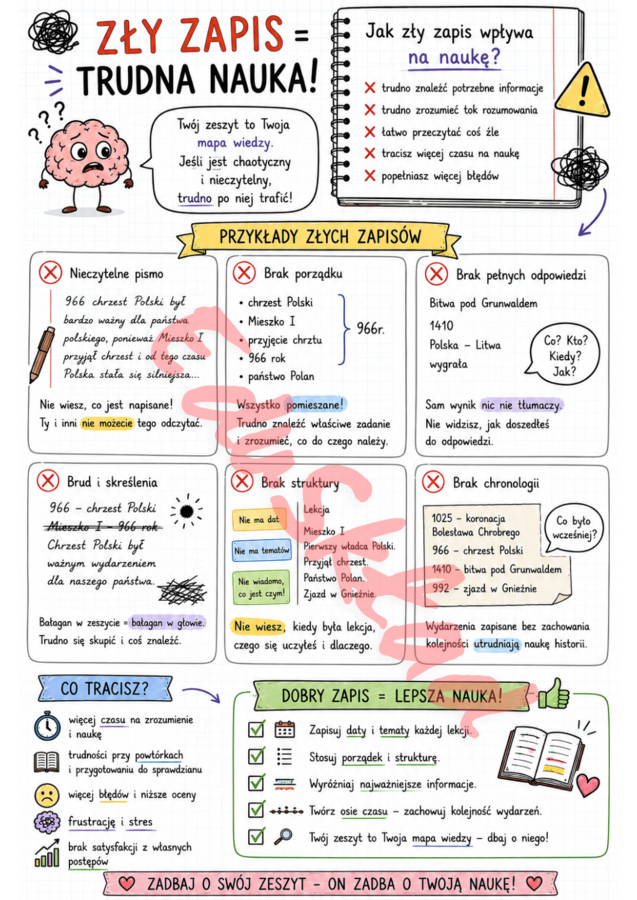 ZŁY ZAPIS =
TRUDNA NAUKA!
???
Twój zeszyt to Twoja
mapa wiedzy.
Jeśli jest chaotyczny
i nieczytelny,
trudno po niej trafić!
Jak zły zapis wpływa
na naukę?
trudno znaleźć potrzebne informacje
trudno zrozumieć tok rozumowania
łatwo przeczytać coś źle
tracisz więcej czasu na naukę
popełniasz więcej błędów
!
PRZYKŁADY ZŁYCH ZAPISÓW
Nieczytelne pismo
966 chrzest Polski był
bardzo ważny dla państwa
polskiego, ponieważ Mieszko I
przyjął chrzest i od tego czasu
Polska stała się silniejsza...
Nie wiesz, co jest napisane!
Ty i inni nie możecie tego odczytać.
Brak porządku
• chrzest Polski
• Mieszko I
• przyjęcie chrztu
• 966 rok
• państwo Polan
966r.
Wszystko pomieszane!
Trudno znaleźć właściwe zadanie
i zrozumieć, co do czego należy.
Brak pełnych odpowiedzi
Bitwa pod Grunwaldem
1410
Polska – Litwa
wygrała
Co? Kto?
Kiedy?
Jak?
Sam wynik nic nie tłumaczy.
Nie widzisz, jak doszedłeś
do odpowiedzi.
Brud i skreślenia
966 – chrzest Polski
Mieszko I – 966 rok
Chrzest Polski był
ważnym wydarzeniem
dla naszego państwa.
Bałagan w zeszycie = bałagan w głowie.
Trudno się skupić i coś znaleźć.
Brak struktury
Nie ma dat
Nie ma tematów
Nie wiadomo,
co jest czym!
Lekcja
Mieszko I
Pierwszy władca Polski.
Przyjął chrzest.
Państwo Polan.
Zjazd w Gnieźnie.
Nie wiesz, kiedy była lekcja,
czego się uczyłeś i dlaczego.
Brak chronologii
1025 – koronacja
Bolesława Chrobrego
966 – chrzest Polski
1410 – bitwa pod Grunwaldem
992 – zjazd w Gnieźnie
Co było
wcześniej?
Wydarzenia zapisane bez zachowania
kolejności utrudniają naukę historii.
CO TRACISZ?
więcej czasu na zrozumienie
i naukę
trudności przy powtórkach
i przygotowaniu do sprawdzianu
więcej błędów i niższe oceny
frustrację i stres
brak satysfakcji z własnych
postępów
DOBRY ZAPIS = LEPSZA NAUKA!
Zapisuj daty i tematy każdej lekcji.
Stosuj porządek i strukturę.
Wyróżniaj najważniejsze informacje.
Twórz osie czasu – zachowuj kolejność wydarzeń.
Twój zeszyt to Twoja mapa wiedzy – dbaj o niego!
ZADBAJ O SWÓJ ZESZYT – ON ZADBA O TWOJĄ NAUKĘ!